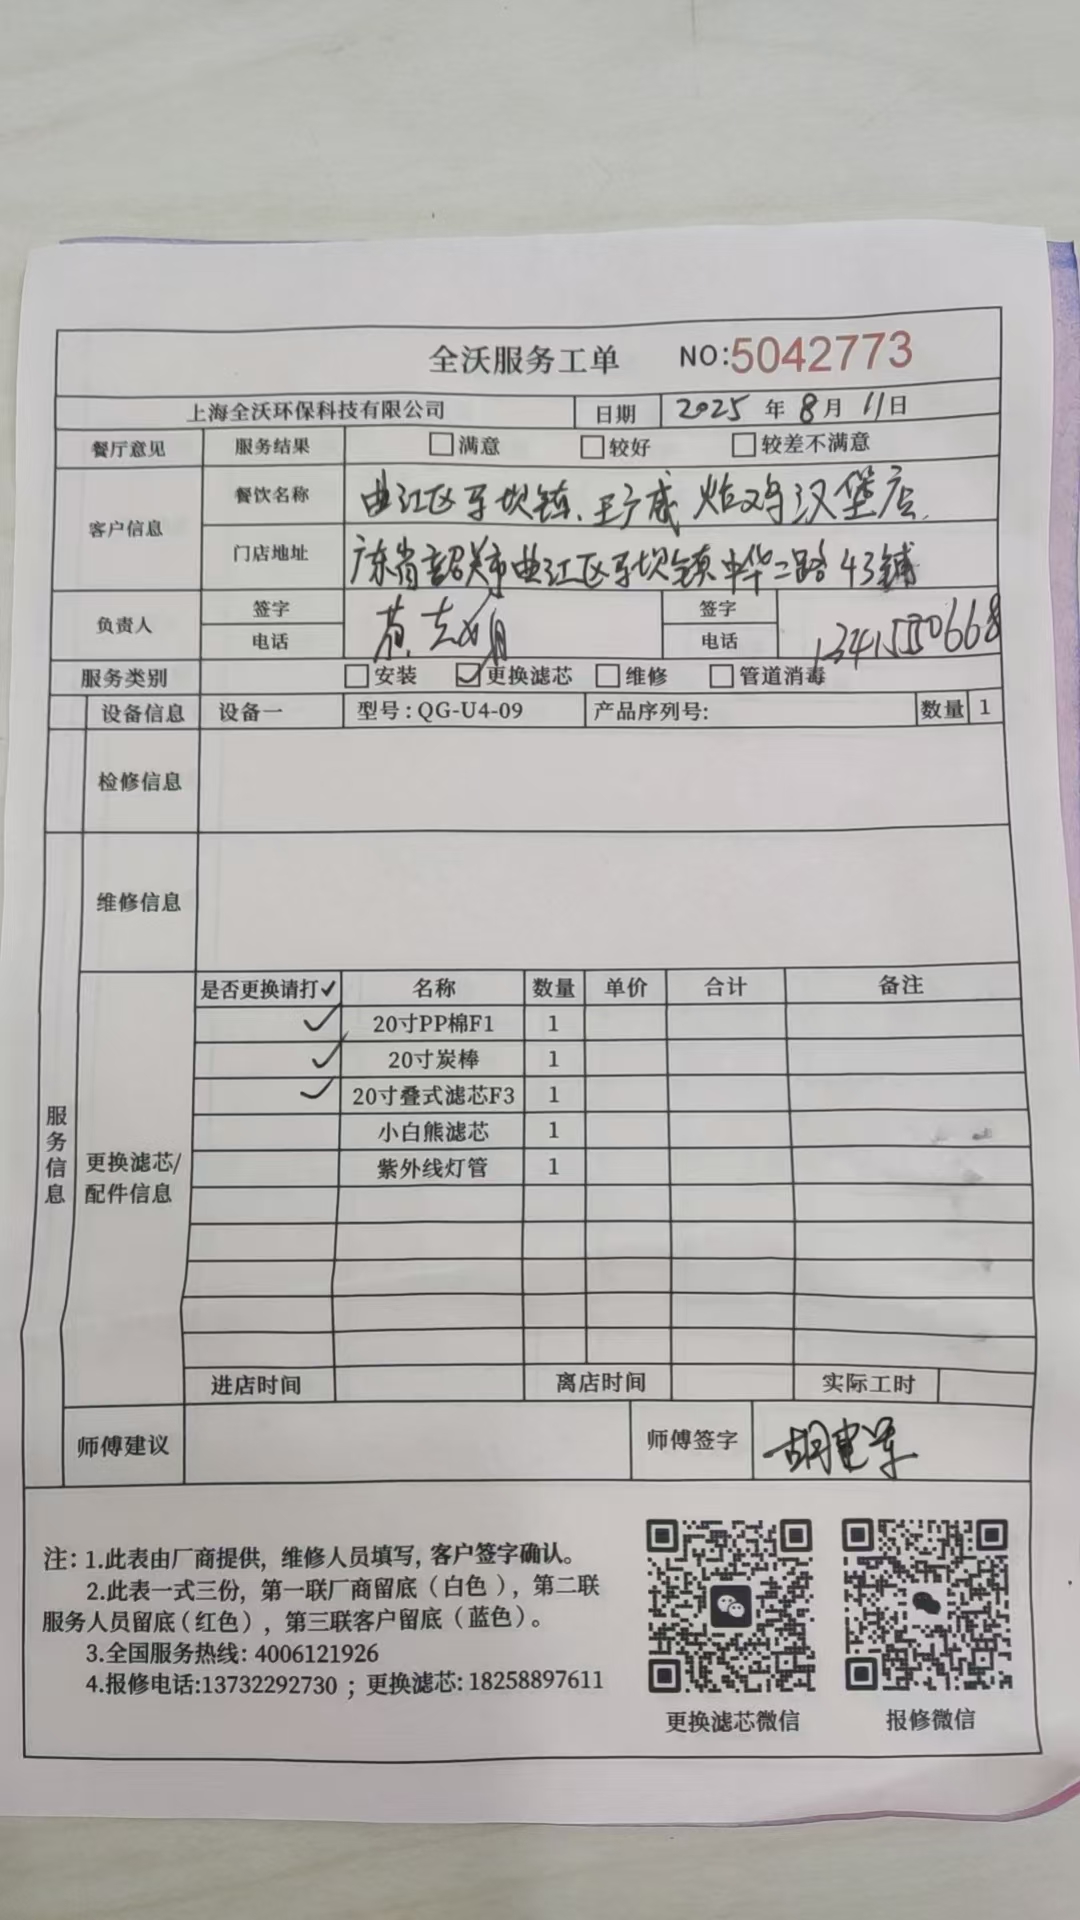 全沃服务工单 NO:5042773
上海全沃环保科技有限公司 日期 2025 年 8 月 11 日
餐厅意见 服务结果 满意 较好 较差不满意
客户信息 餐饮名称 曲江区马坝镇、王广成炸鸡汉堡店
门店地址 广东省韶关市曲江区马坝镇中华二路43铺
负责人 签字 签字
电话 电话 13415550668
服务类别 安装 ✓更换滤芯 维修 管道消毒
设备信息 设备一 型号:QG-U4-09 产品序列号: 数量 1
检修信息
维修信息
服务信息
更换滤芯/
配件信息
是否更换请打✓ 名称 数量 单价 合计 备注
✓ 20寸PP棉F1 1
✓ 20寸炭棒 1
✓ 20寸叠式滤芯F3 1
小白熊滤芯 1
紫外线灯管 1
进店时间 离店时间 实际工时
师傅建议 师傅签字 胡建军
注:1.此表由厂商提供,维修人员填写,客户签字确认。
2.此表一式三份,第一联厂商留底(白色),第二联
服务人员留底(红色),第三联客户留底(蓝色)。
3.全国服务热线:4006121926
4.报修电话:13732292730;更换滤芯:18258897611
更换滤芯微信 报修微信